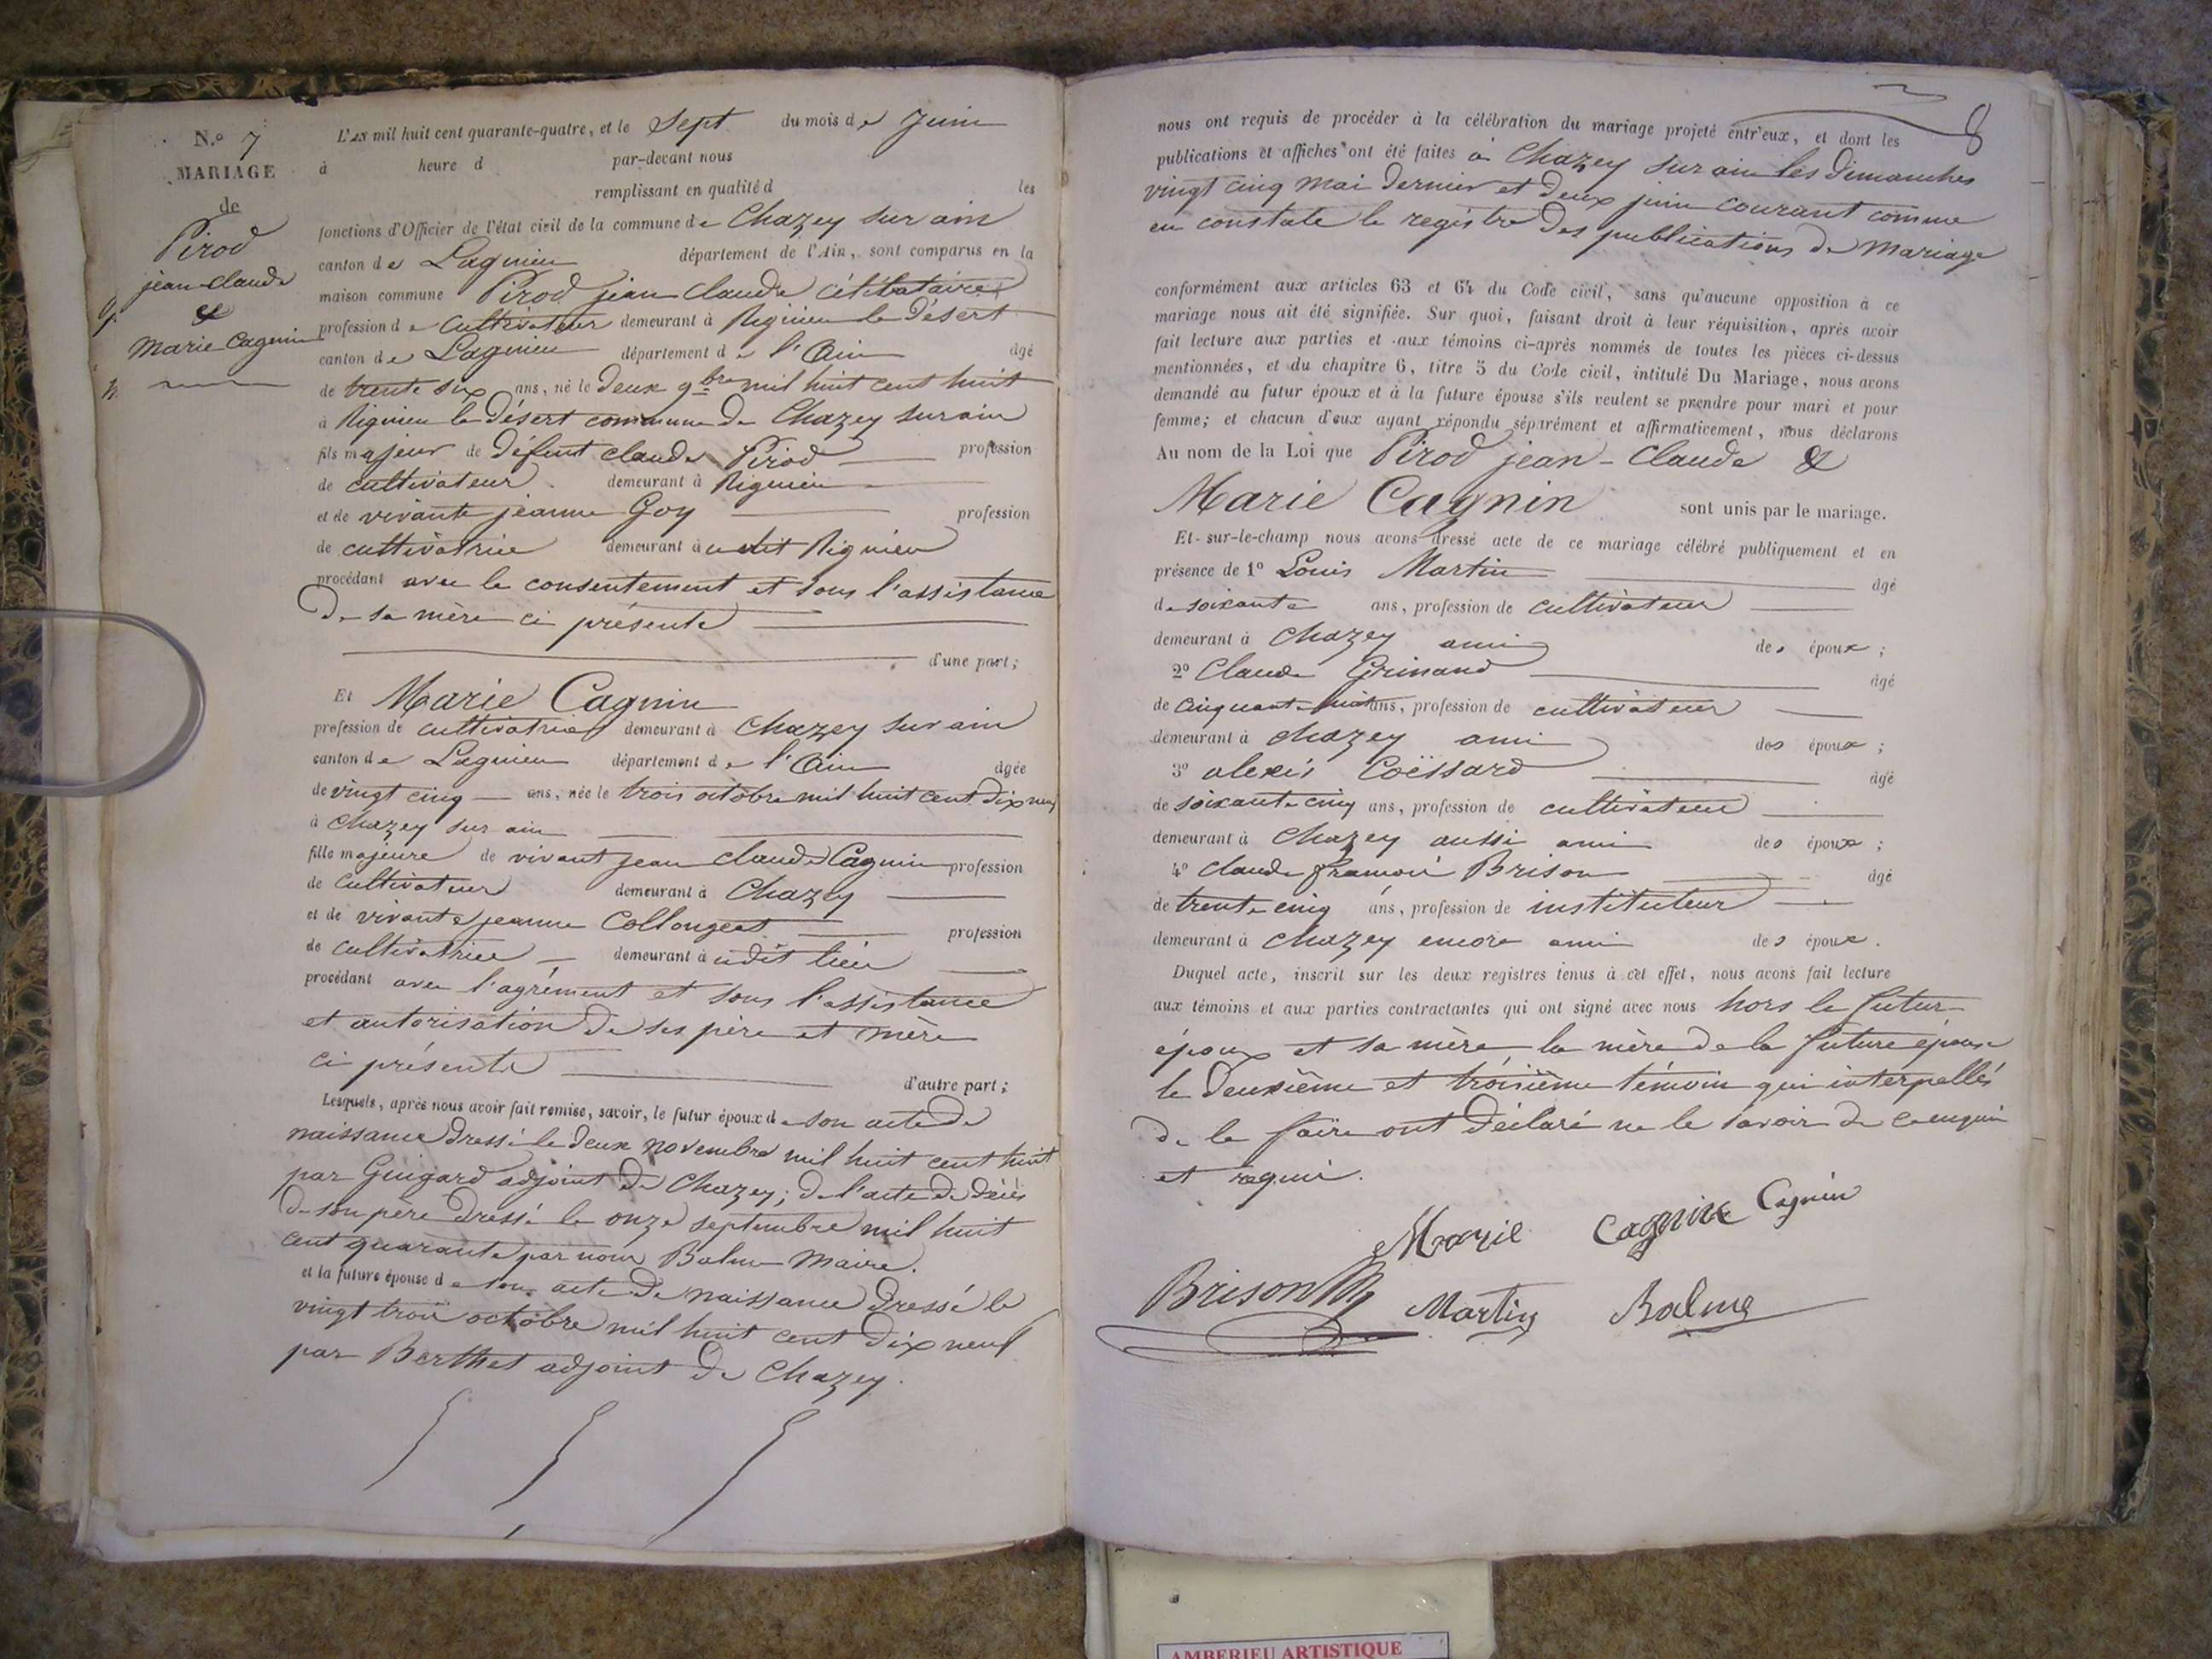 N.o 7
MARIAGE
de
Pirod
jean-claude
&
Marie Cagnin
L'AN mil huit cent quarante-quatre, et le sept du mois de Juin
à heure d par-devant nous
remplissant en qualité d les
fonctions d'Officier de l'état civil de la commune de Chazey sur ain
canton de Lagnieu département de l'Ain, sont comparus en la
maison commune Pirod jean claude célibataire
profession de cultivateur demeurant à Rignieu le Désert
canton de Lagnieu département de l'Ain âgé
de trente six ans, né le deux 9bre mil huit cent huit
à Rignieu le Désert commune de Chazey sur ain
fils majeur de défunt claude Pirod profession
de cultivateur demeurant à Rignieu
et de vivante jeanne Goy profession
de cultivatrice demeurant à udit Rignieu
procédant avec le consentement et sous l'assistance
De sa mère ci présente
d'une part;
Et Marie Cagnin
profession de cultivatrice demeurant à Chazey sur ain
canton de Lagnieu département de l'Ain âgée
de vingt cinq ans, née le trois octobre mil huit cent dix neuf
à Chazey sur ain
fille majeure de vivant jean claude Cagnin profession
de cultivateur demeurant à Chazey
et de vivante jeanne Collongeat profession
de cultivatrice demeurant à udit lieu
procédant avec l'agrément et sous l'assistance
et autorisation de ses père et mère
ci présents
d'autre part;
Lesquels, après nous avoir fait remise, savoir, le futur époux de son acte de
naissance dressé le deux novembre mil huit cent huit
par Guigard adjoint de Chazey; de l'acte de décès
de son père dressé le onze septembre mil huit
cent quarante par nous Balme Maire.
et la future épouse de son acte de naissance dressé le
vingt trois octobre mil huit cent dix neuf
par Berthet adjoint de Chazey.
8
nous ont requis de procéder à la célébration du mariage projeté entr'eux, et dont les
publications et affiches ont été faites à Chazey sur ain les dimanches
vingt cinq mai dernier et deux juin courant comme
en constate le registre des publications de Mariage
conformément aux articles 63 et 64 du Code civil, sans qu'aucune opposition à ce
mariage nous ait été signifiée. Sur quoi, faisant droit à leur réquisition, après avoir
fait lecture aux parties et aux témoins ci-après nommés de toutes les pièces ci-dessus
mentionnées, et du chapitre 6, titre 5 du Code civil, intitulé Du Mariage, nous avons
demandé au futur époux et à la future épouse s'ils veulent se prendre pour mari et pour
femme; et chacun d'eux ayant répondu séparément et affirmativement, nous déclarons
Au nom de la Loi que Pirod jean-claude &
Marie Cagnin sont unis par le mariage.
Et sur-le-champ nous avons dressé acte de ce mariage célébré publiquement et en
présence de 1o Louis Martin âgé
de soixante ans, profession de cultivateur
demeurant à Chazey ami des époux;
2o Claude Grinand âgé
de cinquante huit ans, profession de cultivateur
demeurant à Chazey ami des époux;
3o alexis Coëssard âgé
de soixante cinq ans, profession de cultivateur
demeurant à Chazey aussi ami des époux;
4o claude françois Brison âgé
de trente cinq ans, profession de instituteur
demeurant à Chazey encore ami des époux.
Duquel acte, inscrit sur les deux registres tenus à cet effet, nous avons fait lecture
aux témoins et aux parties contractantes qui ont signé avec nous hors le futur
époux et sa mère, la mère de la future épouse
le deuxième et troisième témoin qui interpellés
de le faire ont déclaré ne le savoir de ce enquis
et requis.
Marie Cagnin Cagnin
Brison Martin Balme
AMBERIEU ARTISTIQUE